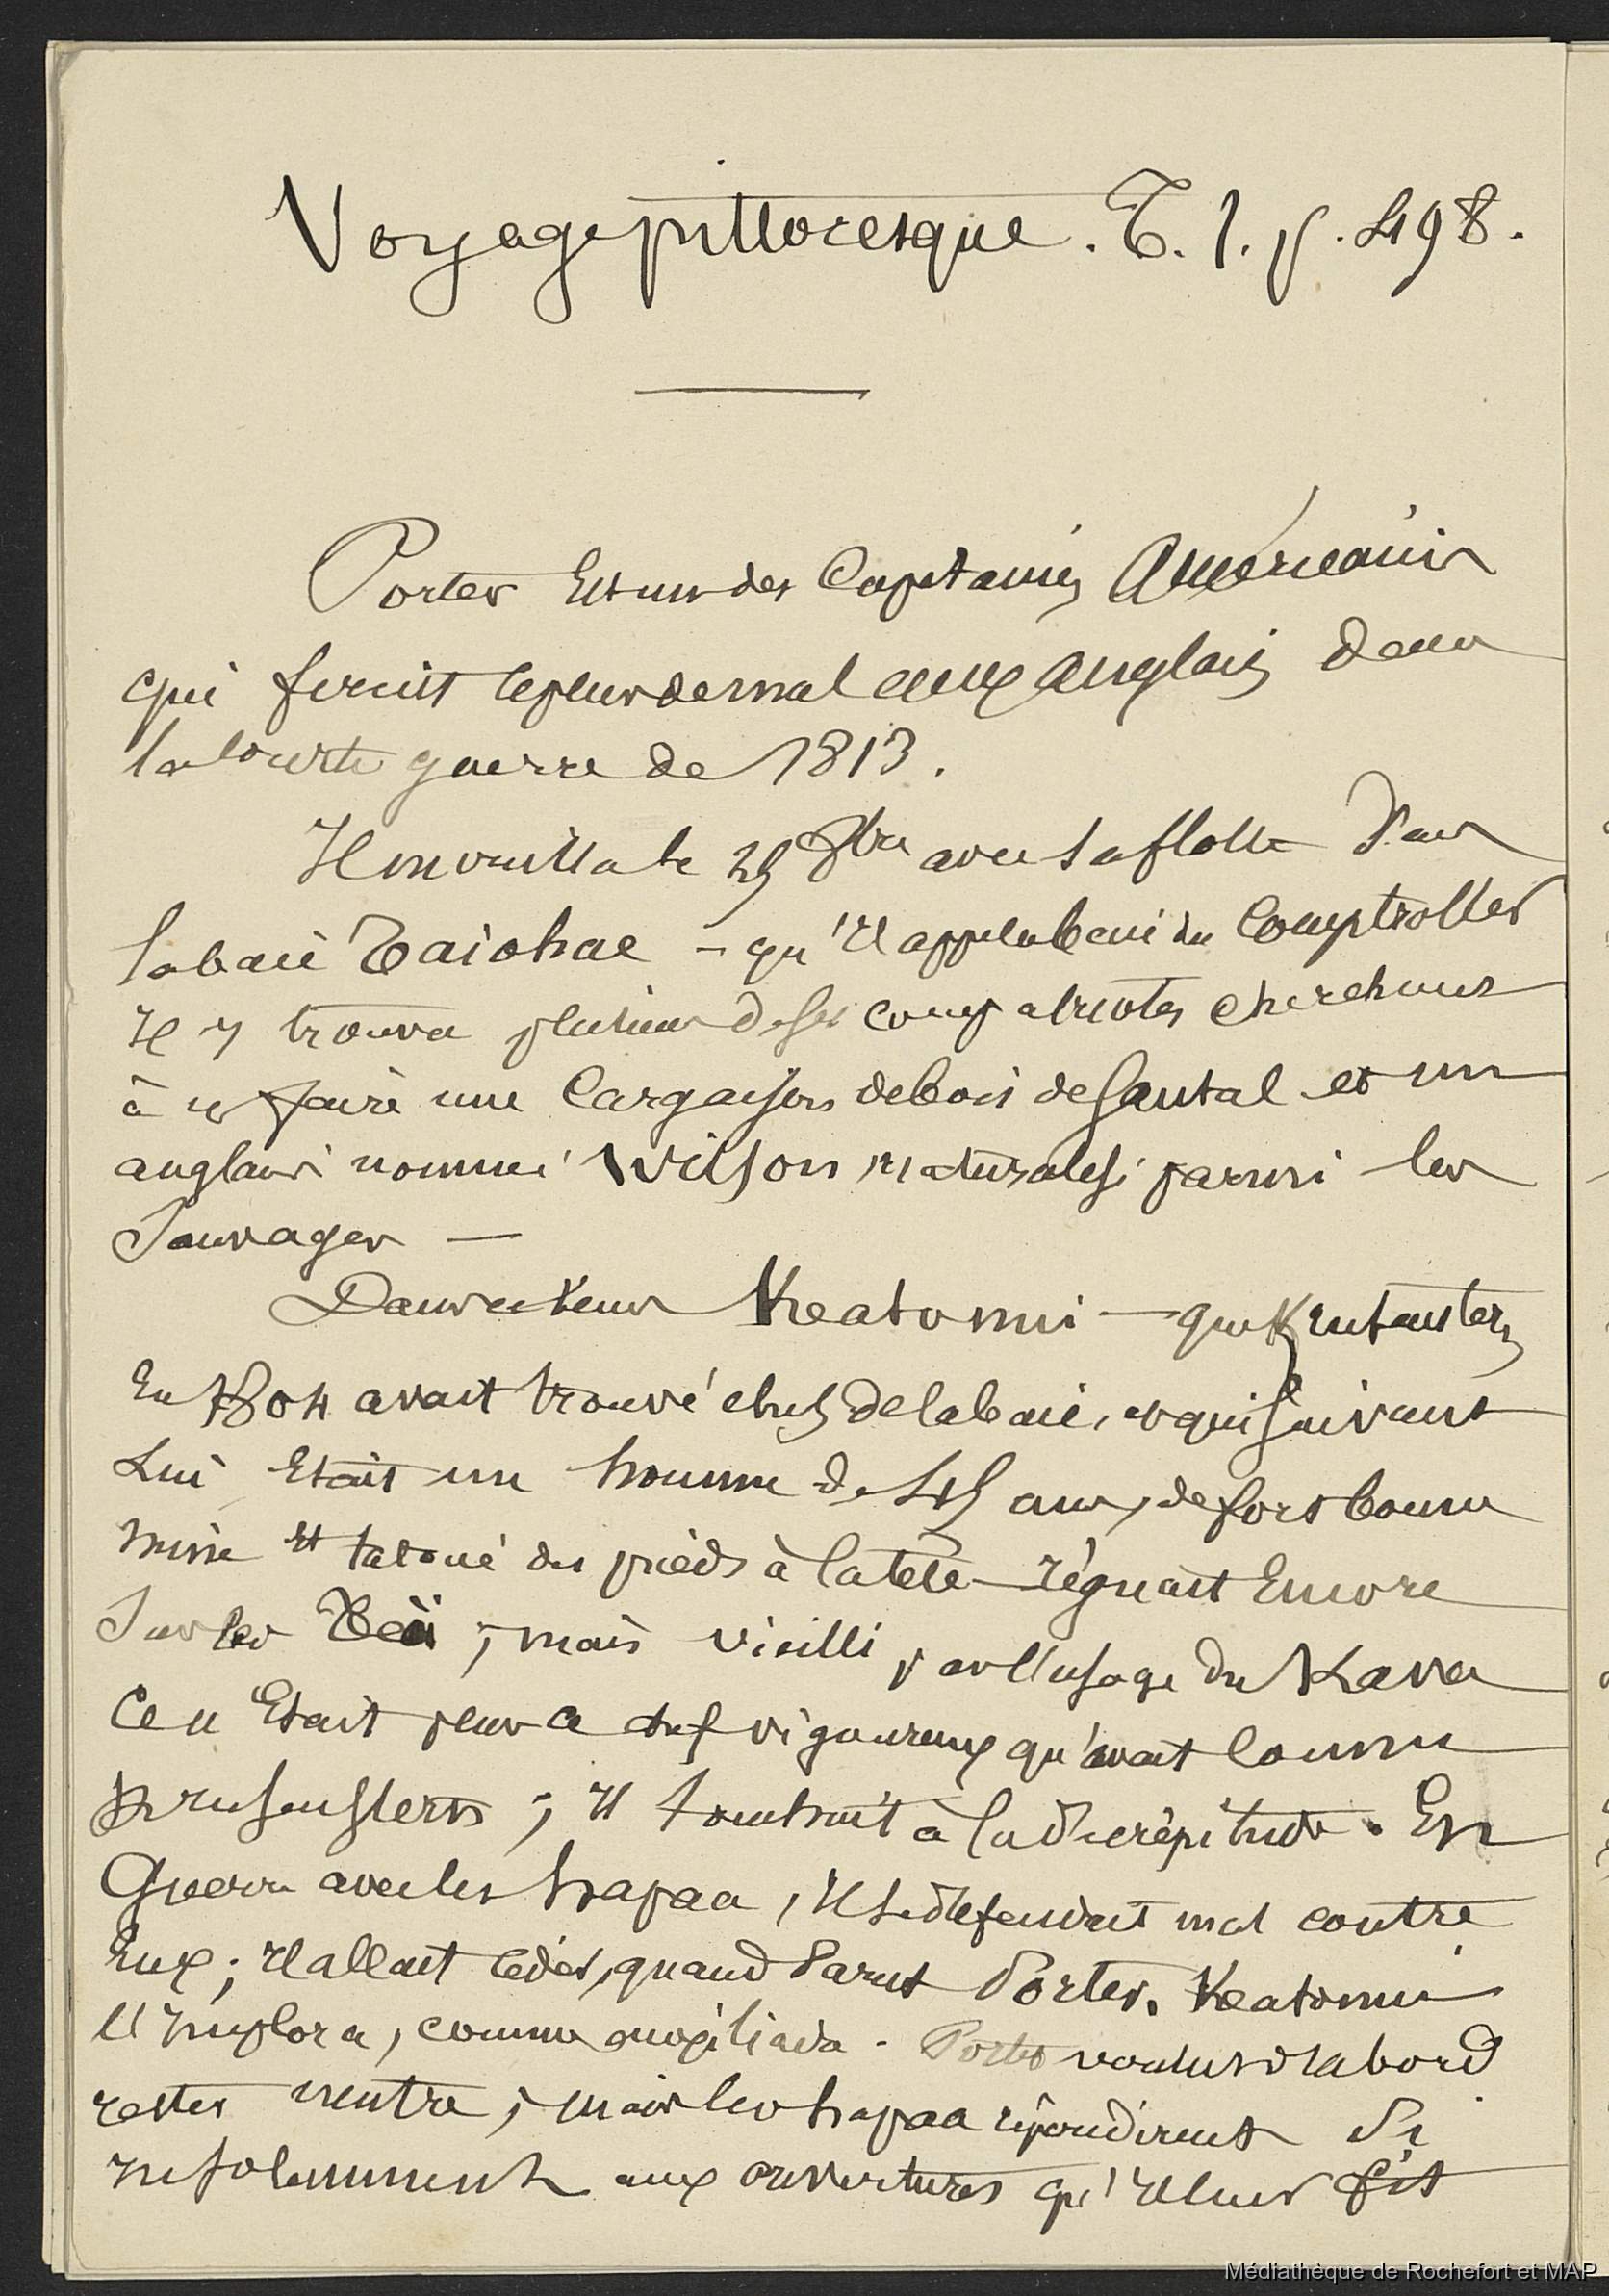 Voyage pittoresque. T. 1. p. 498.
Porter est un des Capitaines Américains
qui firent le plus de mal aux Anglais dans
la courte guerre de 1813.
Il mouilla le 25 8bre avec sa flotte dans
la baie Taiohae - qu'il appela baie du Comptroller
Il y trouva plusieurs de ses compatriotes cherchant
à y faire une Cargaison de bois de Santal et un
anglais nommé Wilson naturalisé parmi les
Sauvages —
Dans ce temps Keatonui — que Krusenstern
en 1804 avait trouvé chef de la baie, et qui suivant
lui était un homme de 45 ans, de fort bonne
mine et tatoué des pieds à la tête — régnait encore
Sur les Teii ; mais vieilli par l'usage du Kava
Ce n'était plus ce chef vigoureux qu'avait connu
Krusenstern ; il tombait à la décrépitude. En
Guerre avec les hapaa, il se défendait mal contre
eux ; il allait céder, quand parut Porter. Keatonui
l'implora, comme auxiliaire. Porter voulut d'abord
rester neutre ; mais les hapaa répondirent si
insolemment aux ouvertures qu'il leur fit
Médiathèque de Rochefort et MAP